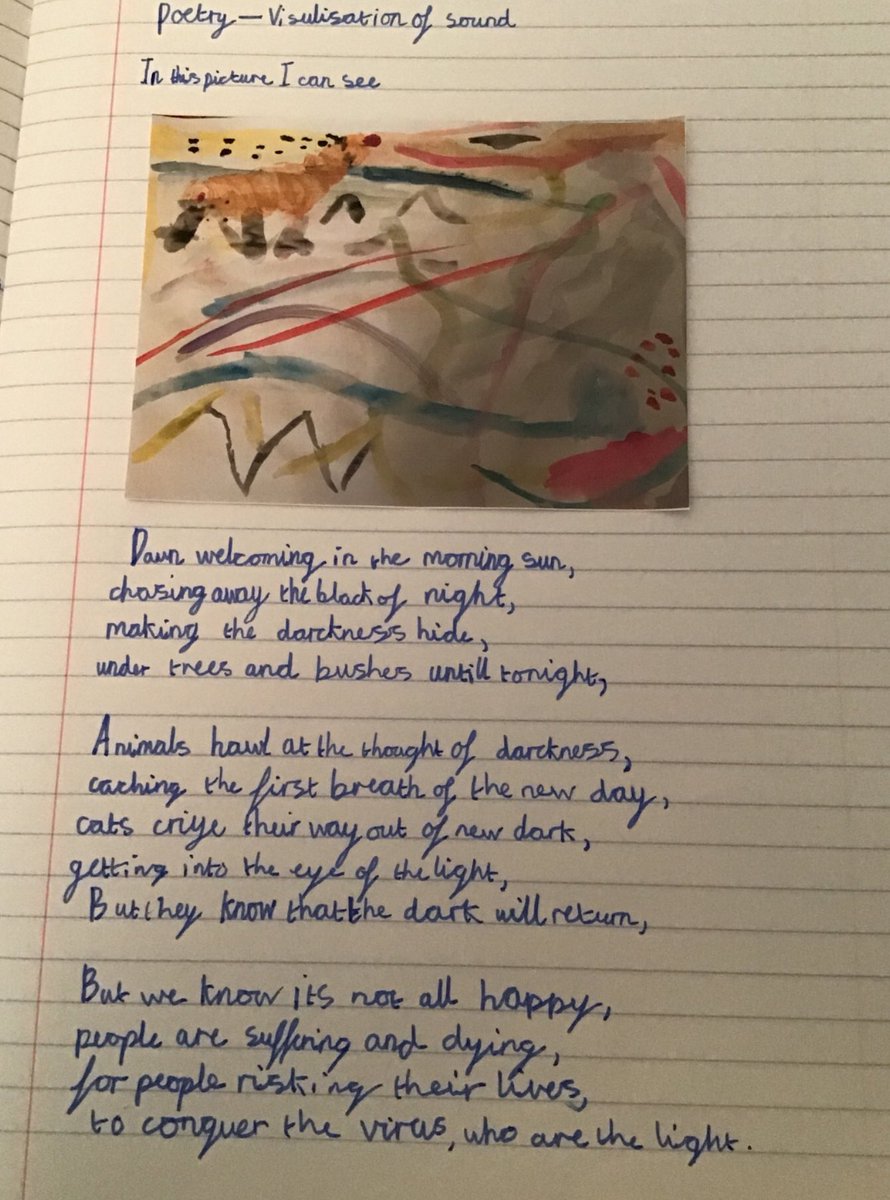 Poetry — Visulisation of sound
In this picture I can see
Dawn welcoming in the morning sun,
chasing away the black of night,
making the darckness hide,
under trees and bushes untill tonight,
Animals hawl at the thought of darckness,
caching the first breath of the new day,
cats criye their way out of new dark,
getting into the eye of the light,
But they know that the dark will return,
But we know its not all happy,
people are suffering and dying,
for people risking their lives,
to conquer the virus, who are the light.